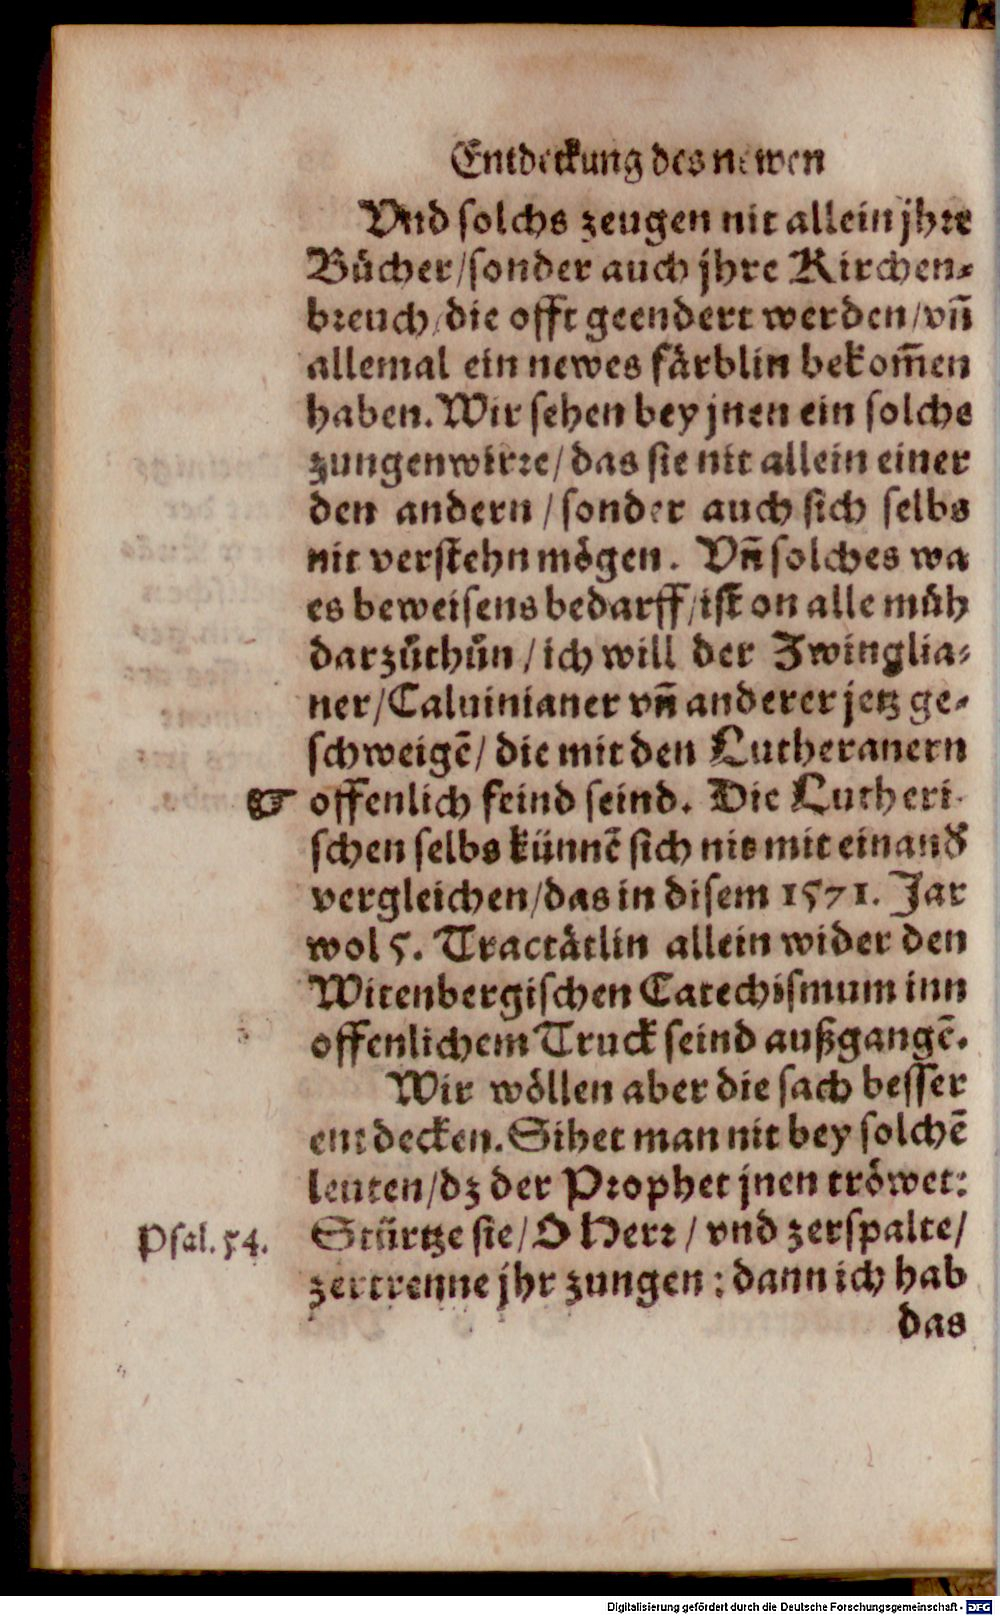 Entdeckung des newen
Vnd solchs zeugen nit allein jhre
Bůcher/sonder auch jhre Kirchen⸗
breuch/die offt geendert werden/vñ
allemal ein newes fårblin bekom̃en
haben. Wir sehen bey jnen ein solche
zungenwirre/das sie nit allein einer
den andern/sonder auch sich selbs
nit verstehn mögen. Vñ solches wa
es beweisens bedarff/ist on alle můh
darzůthůn/ich will der Zwinglia⸗
ner/Caluinianer vñ anderer jetz ge⸗
schweigẽ/die mit den Lutheranern
☞ offenlich feind seind. Die Lutheri
schen selbs künnẽ sich nit mit einand
vergleichen/das in disem 1571. Jar
wol 5. Tractåtlin allein wider den
Witenbergischen Catechismum inn
offenlichem Truck seind außgangẽ.
Wir wöllen aber die sach besser
entdecken. Sihet man nit bey solchẽ
leuten/dz der Prophet jnen tröwet:
Psal. 54. Stürtze sie/O Herr/vnd zerspalte/
zertrenne jhr zungen: dann ich hab
das
Digitalisierung gefördert durch die Deutsche Forschungsgemeinschaft - DFG